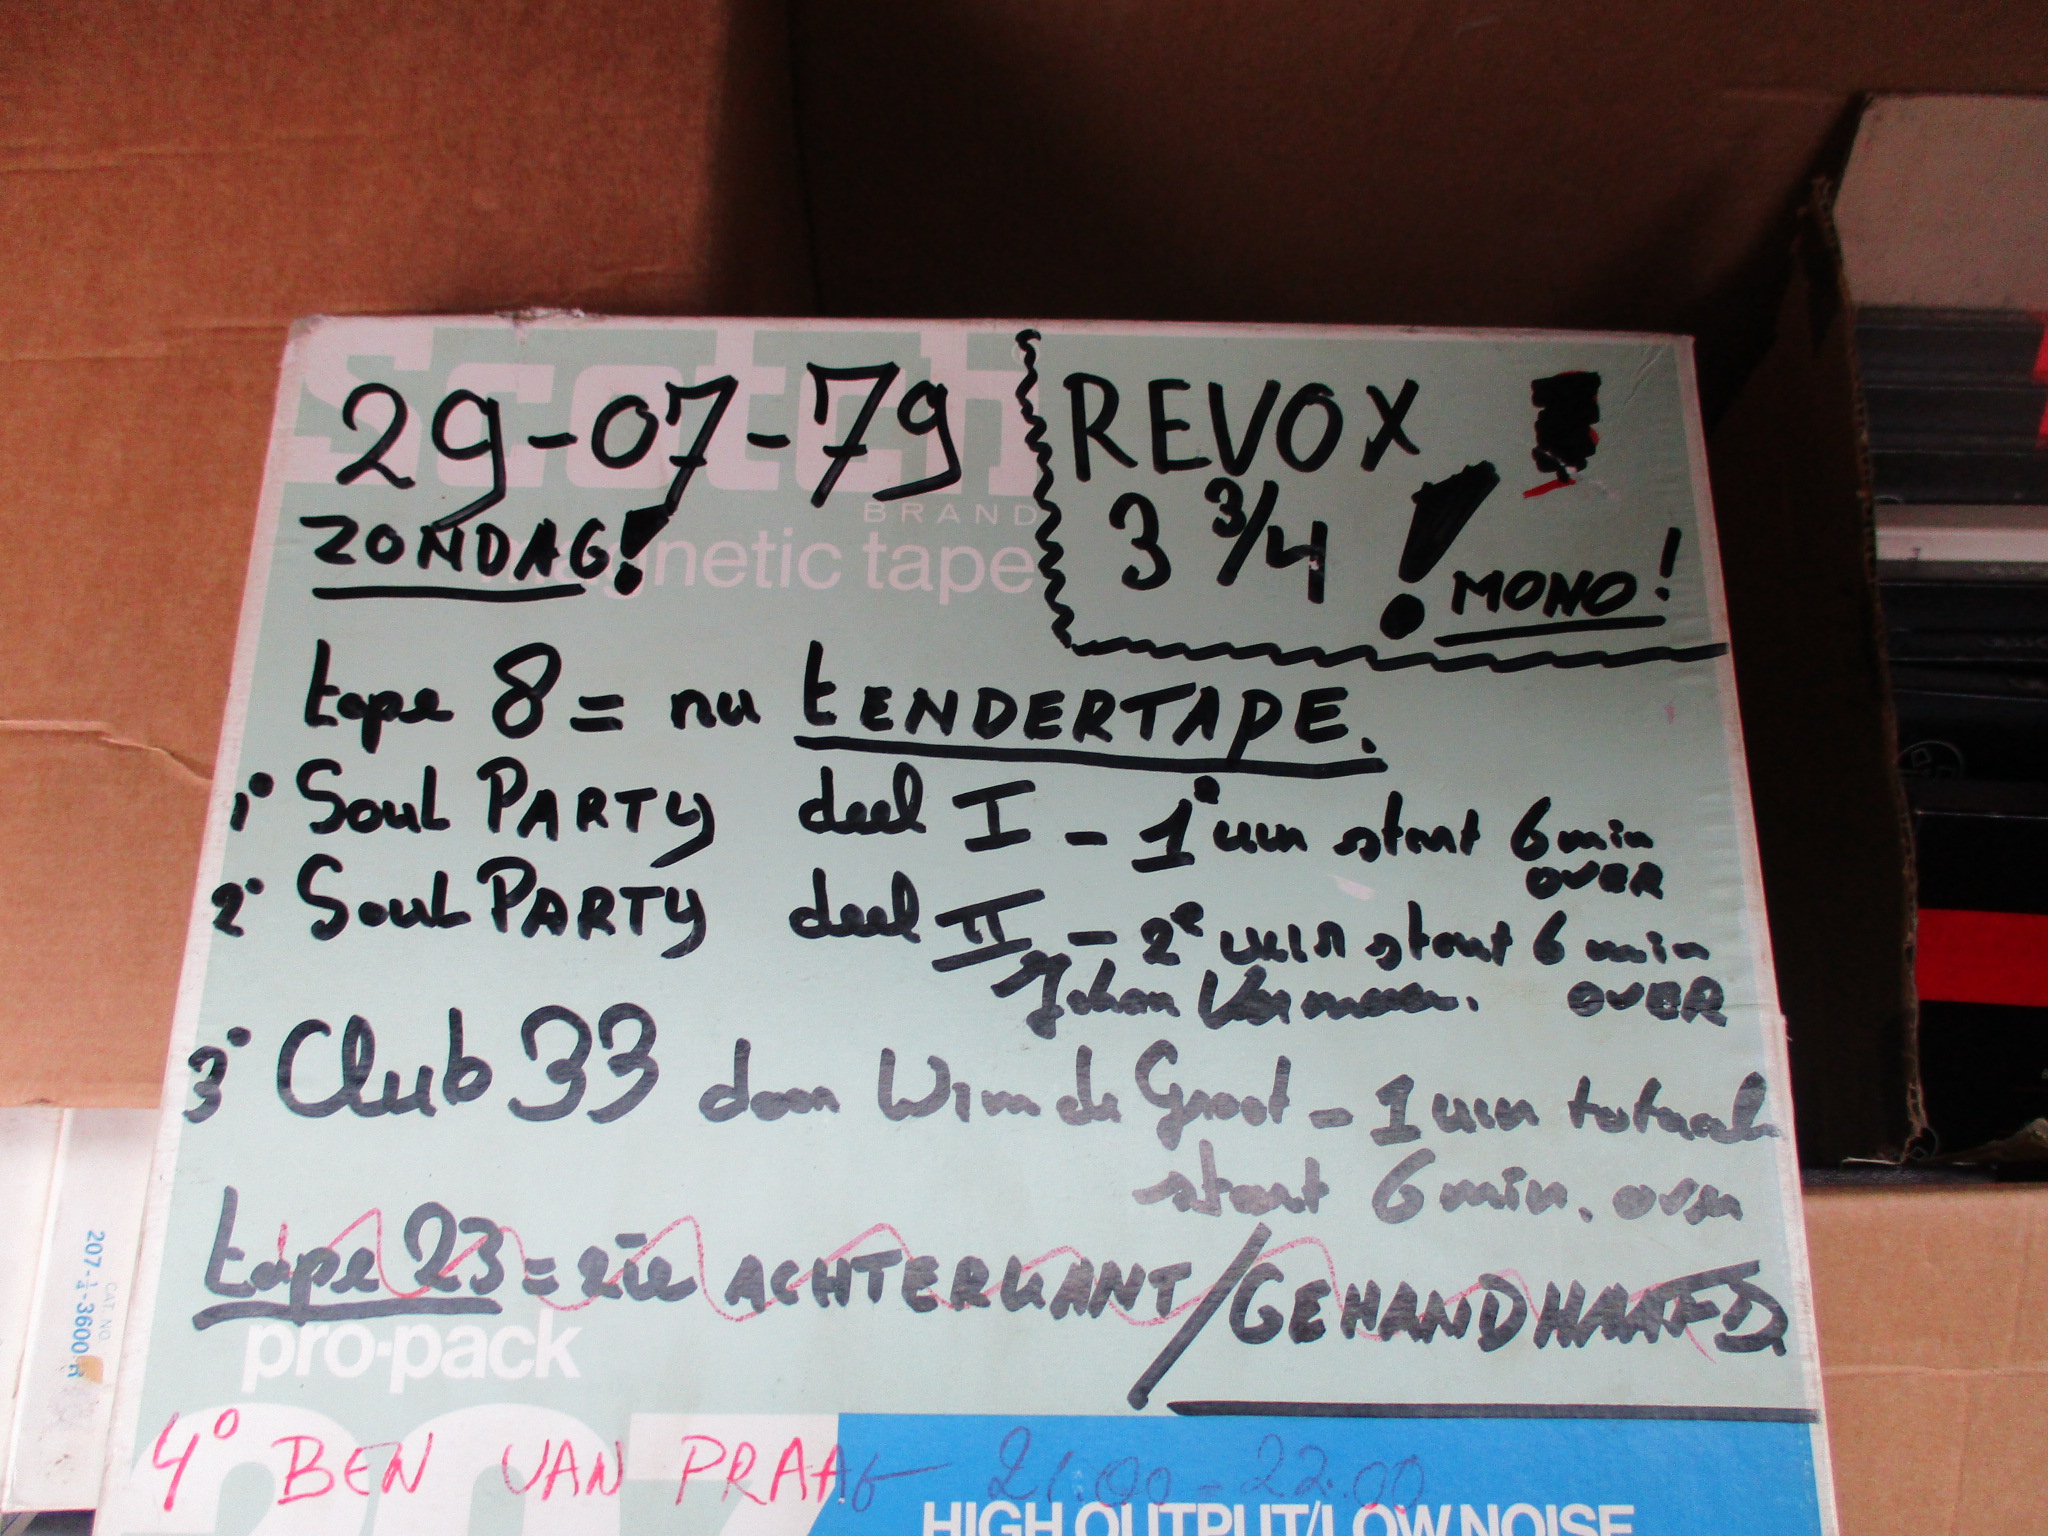 scotch
BRAND
magnetic tape
29-07-79
ZONDAG!
REVOX
3 3/4 !
MONO!
tape 8 = nu tENDERTAPE.
1° Soul PARTY deel I - 1° uur start 6 min
OVER
2° Soul PARTY deel II - 2e uur start 6 min
OVER
Johan Vermeer.
3° Club 33 door Wim de Groot - 1 uur totaal
start 6 min. over
tape 23 = zie ACHTERKANT/GEHANDHAAFD
pro-pack
4° BEN VAN PRAAG 21.00 - 22.00
207
HIGH OUTPUT/LOW NOISE
CAT NO.
207-1/4-3600-R